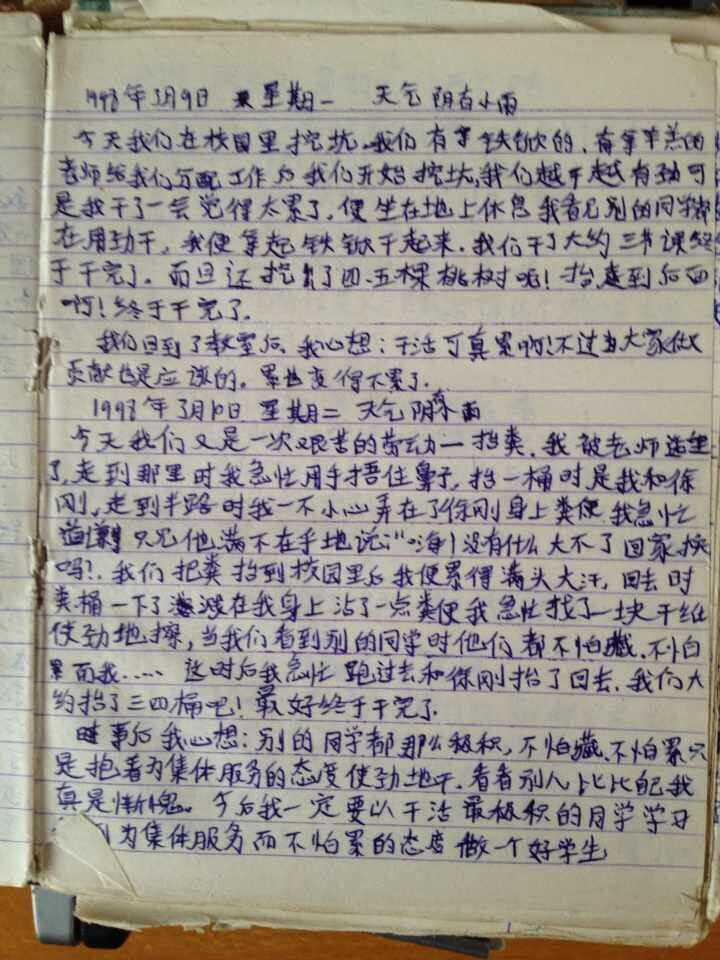 1998年3月9日 星期一 天气 阴有小雨
今天我们在校园里挖坑,我们有拿铁锨的,有拿羊羔的
老师给我们分配工作后我们开始挖坑,我们越干越有劲可
是我干了一会觉得太累了,便坐在地上休息我看见别的同学都
在用劲干,我便拿起铁锨干起来.我们干了大约三节课终
于干完了.而且还挖了四.五棵桃树呢!抬走到后面
啊!终于干完了.
我们回到了教室后、我心想:干活可真累啊!不过为大家做
贡献也是应该的.累也变得不累了.
1998年3月10日 星期二 天气阴有小雨
今天我们又是一次艰苦的劳动一抬粪.我被老师选里
了,走到那里时我急忙用手捂住鼻子,抬一桶时是我和徐
刚,走到半路时我一不小心弄在了徐刚身上粪便.我急忙
道谦 只见他满不在乎地说:"嗨!没有什么大不了回家换
吗?.我们把粪抬到校园里后我便累得满头大汗,回去时
粪桶一下了 在我身上沾了一点粪便我急忙找了一块干纸
使劲地擦,当我们看到别的同学时他们都不怕藏.不怕
累而我..... 这时后我急忙跑过去和徐刚抬了回去.我们大
约抬了三四桶吧!最好终于干完了.
事后我心想:别的同学都那么积积,不怕藏、不怕累只
是抱着为集体服务的态度使劲地干.看看别人比比自己我
真是惭愧。今后我一定要以干活最极积的同学学习
为集体服务而不怕累的态度做一个好学生